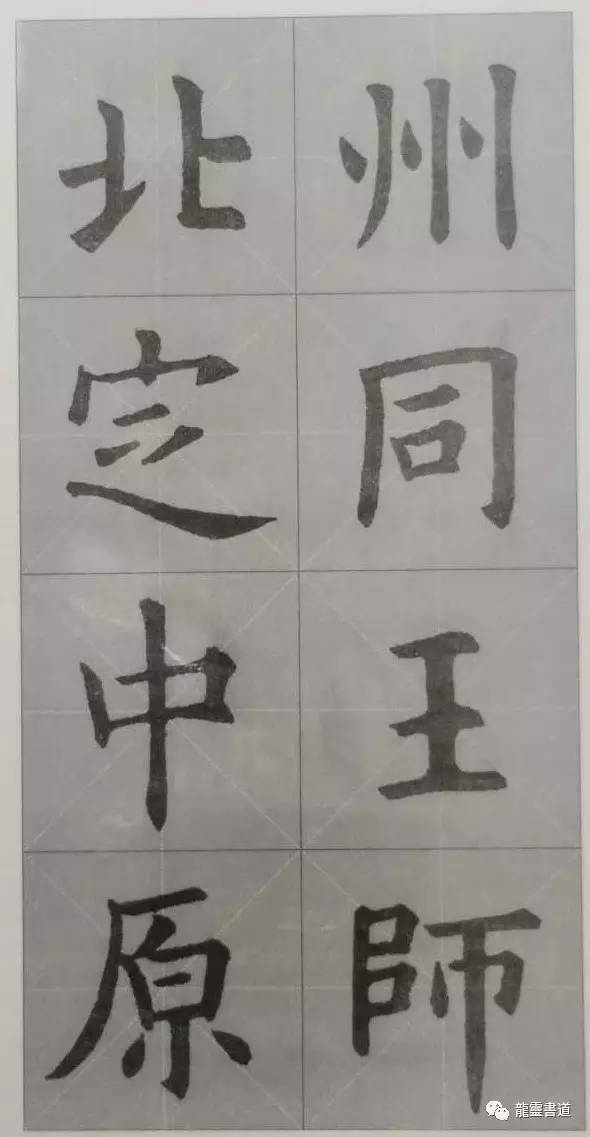 州同王師
北定中原
龍靈書道